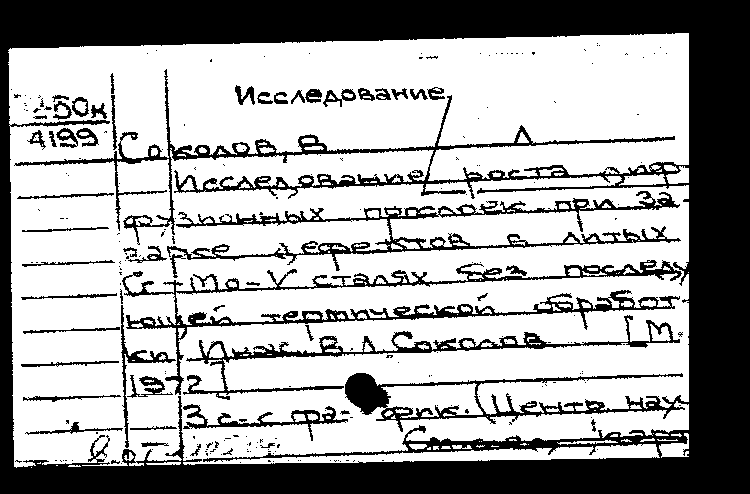 Исследование
-50к
4199
Соколов, В Л
Исследование роста диф
фузионных прослоек при за-
варке дефектов в литых
Cr-Mo-V сталях без последу
ющей термической обработ-
ки, Инж. В. Л Соколов [М.
1972]
3 с. с гра- фик. (Центр нау-
См. след. карт